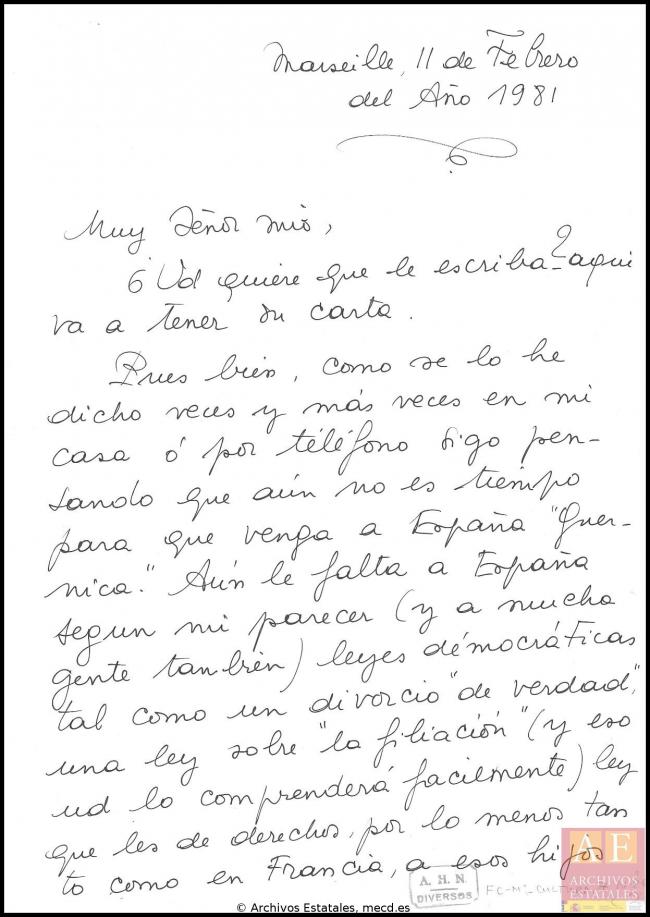 Marseille, 11 de Febrero
del Año 1981
Muy Señor mio,
¿Ud quiere que le escriba? aqui
va a tener su carta.
Pues bien, como se lo he
dicho veces y más veces en mi
casa ó por téléfono sigo pen-
sando que aún no es tiempo
para que venga a España "Guer-
nica." Aún le falta a España
segun mi parecer (y a mucha
gente también) leyes démocráticas
tal como un divorcio "de verdad",
una ley sobre "la filiación" (y eso
ud lo comprenderá facilmente) ley
que les de derechos, por lo menos tan
to como en Francia, a esos hijos
A. H. N.
DIVERSOS
AE
ARCHIVOS
ESTATALES
© Archivos Estatales, mecd.es